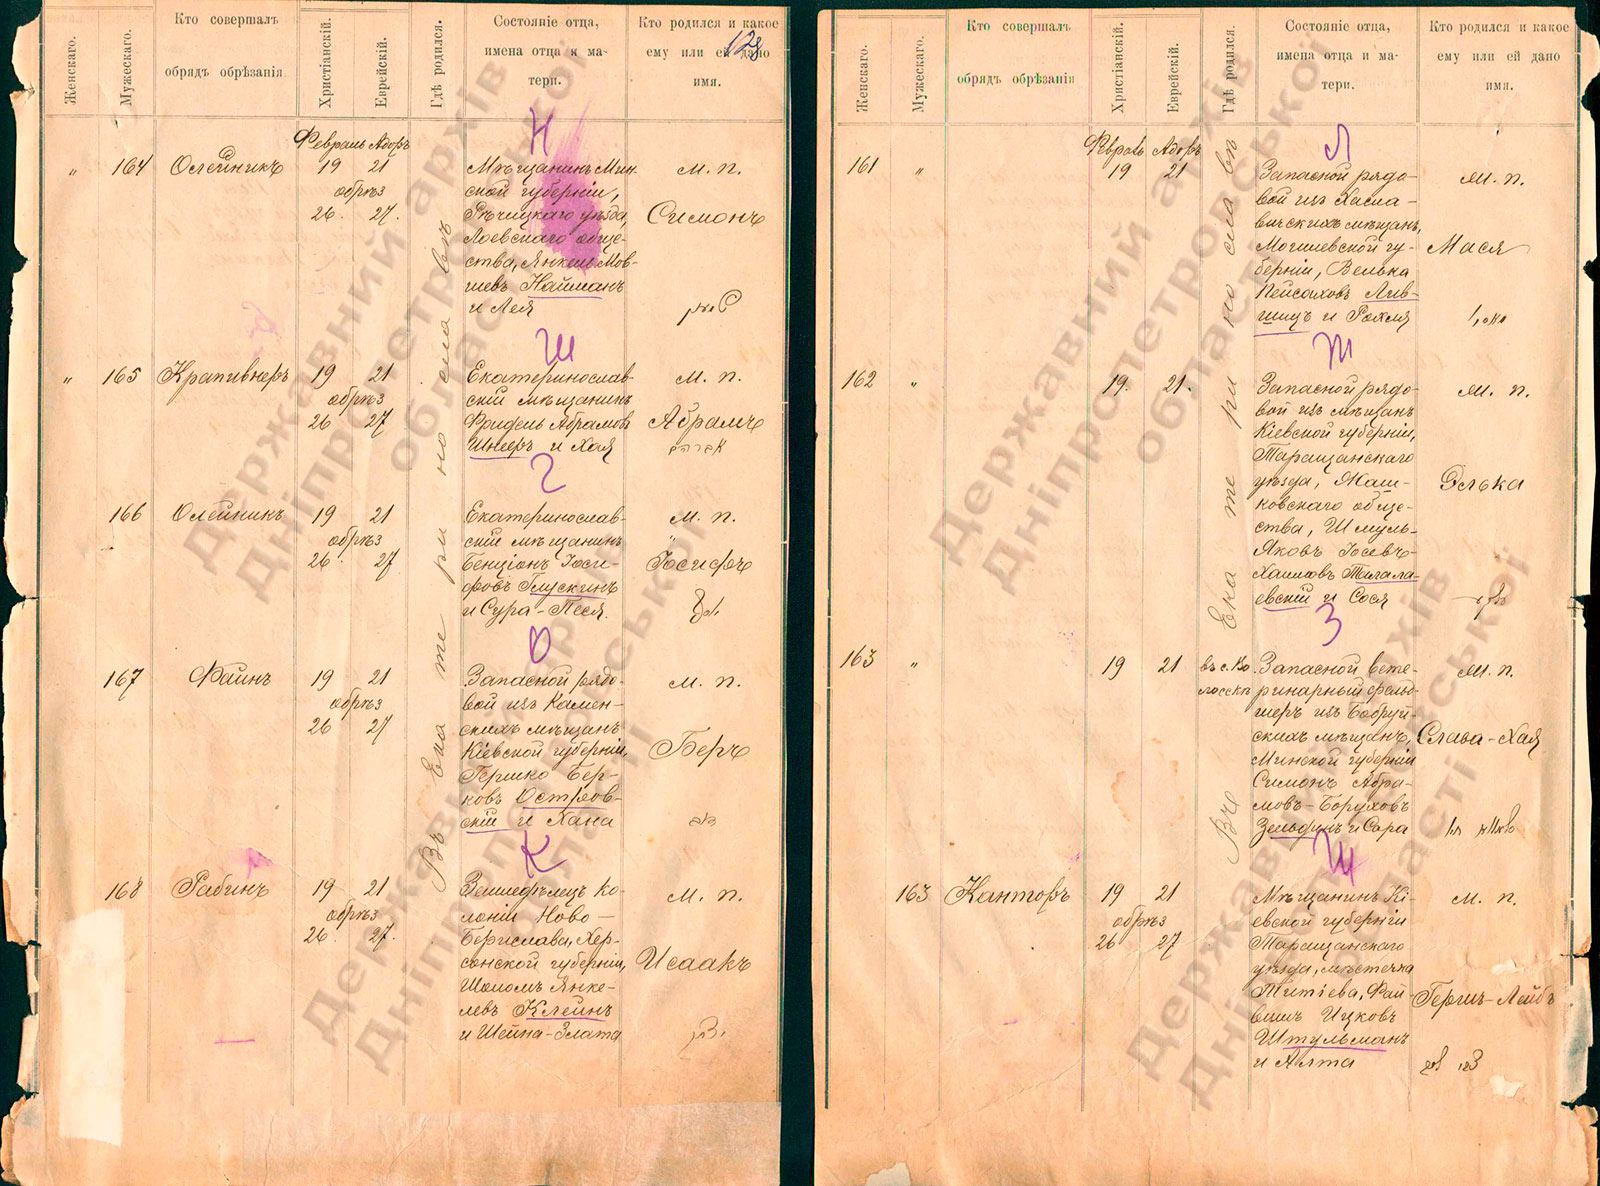 Женскаго.
Мужескаго.
Кто совершалъ
обрядъ обрѣзанія
Христіанскій.
Еврейскій.
Гдѣ родился.
Состояніе отца,
имена отца и ма-
тери.
Кто родился и какое
ему или ей дано
имя.
128
Февраль Адоръ
Н
„ 164 Олейникъ 19 21
обрѣз
26. 27.
Мѣщанинъ Мин-
ской губерніи,
Рѣчицкаго уѣзда,
Лоевскаго обще-
ства, Янкель Мов-
шевъ Найманъ
и Лея
м. п.
Симонъ
Ш
„ 165 Крапивнеръ 19 21
обрѣз
26 27
Екатеринослав-
скій мѣщанинъ
Фридель Абрамовъ
Шнееръ и Хая
м. п.
Абрамъ
אברהם
Г
166 Олейникъ 19 21
обрѣз
26. 27.
Екатеринослав-
скій мѣщанинъ
Бенціонъ Іоси-
фовъ Глускинъ
и Сура-Песя.
м. п.
Іосифъ
О
167 Файнъ 19 21
обрѣз
26 27
Запасной рядо-
вой изъ Камен-
скихъ мѣщанъ
Кіевской губерніи,
Гершко Бер-
ковъ Островъ-
скій и Хана
м. п.
Беръ
К
168 Рабинъ 19 21
обрѣз
26. 27.
Земледѣлецъ ко-
лоніи Ново-
Бериславъ, Хер-
сонской губерніи,
Шоломъ Янке-
левъ Клейнъ
и Шейна-Злата
м. п.
Исаакъ
Въ Екатеринославѣ
Женскаго.
Мужескаго.
Кто совершалъ
обрядъ обрѣзанія
Христіанскій.
Еврейскій.
Гдѣ родился.
Состояніе отца,
имена отца и ма-
тери.
Кто родился и какое
ему или ей дано
имя.
Февраль Адоръ
Л
161 „ 19 21
Запасной рядо-
вой изъ Хасла-
вичскихъ мѣщанъ,
Могилевской гу-
берніи, Велька
Пейсаховъ Лив-
шицъ и Рохля
м. п.
Мася
Т
162 „ 19. 21.
Запасной рядо-
вой изъ мѣщанъ
Кіевской губерніи,
Таращанскаго
уѣзда, Жаш-
ковскаго обще-
ства, Шмуль-
Яковъ Іосевъ-
Хаимовъ Талала-
евскій и Сося
м. п.
Элька
З
163 „ 19 21
Запасной вете-
ринарный фельд-
шеръ изъ Бобруй-
скихъ мѣщанъ,
Минской губерніи
Симонъ Абра-
мовъ-Боруховъ
Зельдинъ и Сара
м. п.
Слава-Хая
Ш
163 Канторъ 19 21
обрѣз
26 27
Мѣщанинъ Кі-
евской губерніи
Таращанскаго
уѣзда, мѣстечка
Тетіева, Фай-
вишъ Ицковъ
Штульманъ
и Алта
м. п.
Гершъ-Лейбъ
Въ Екатеринославѣ
Державний архів
Дніпропетровської
області